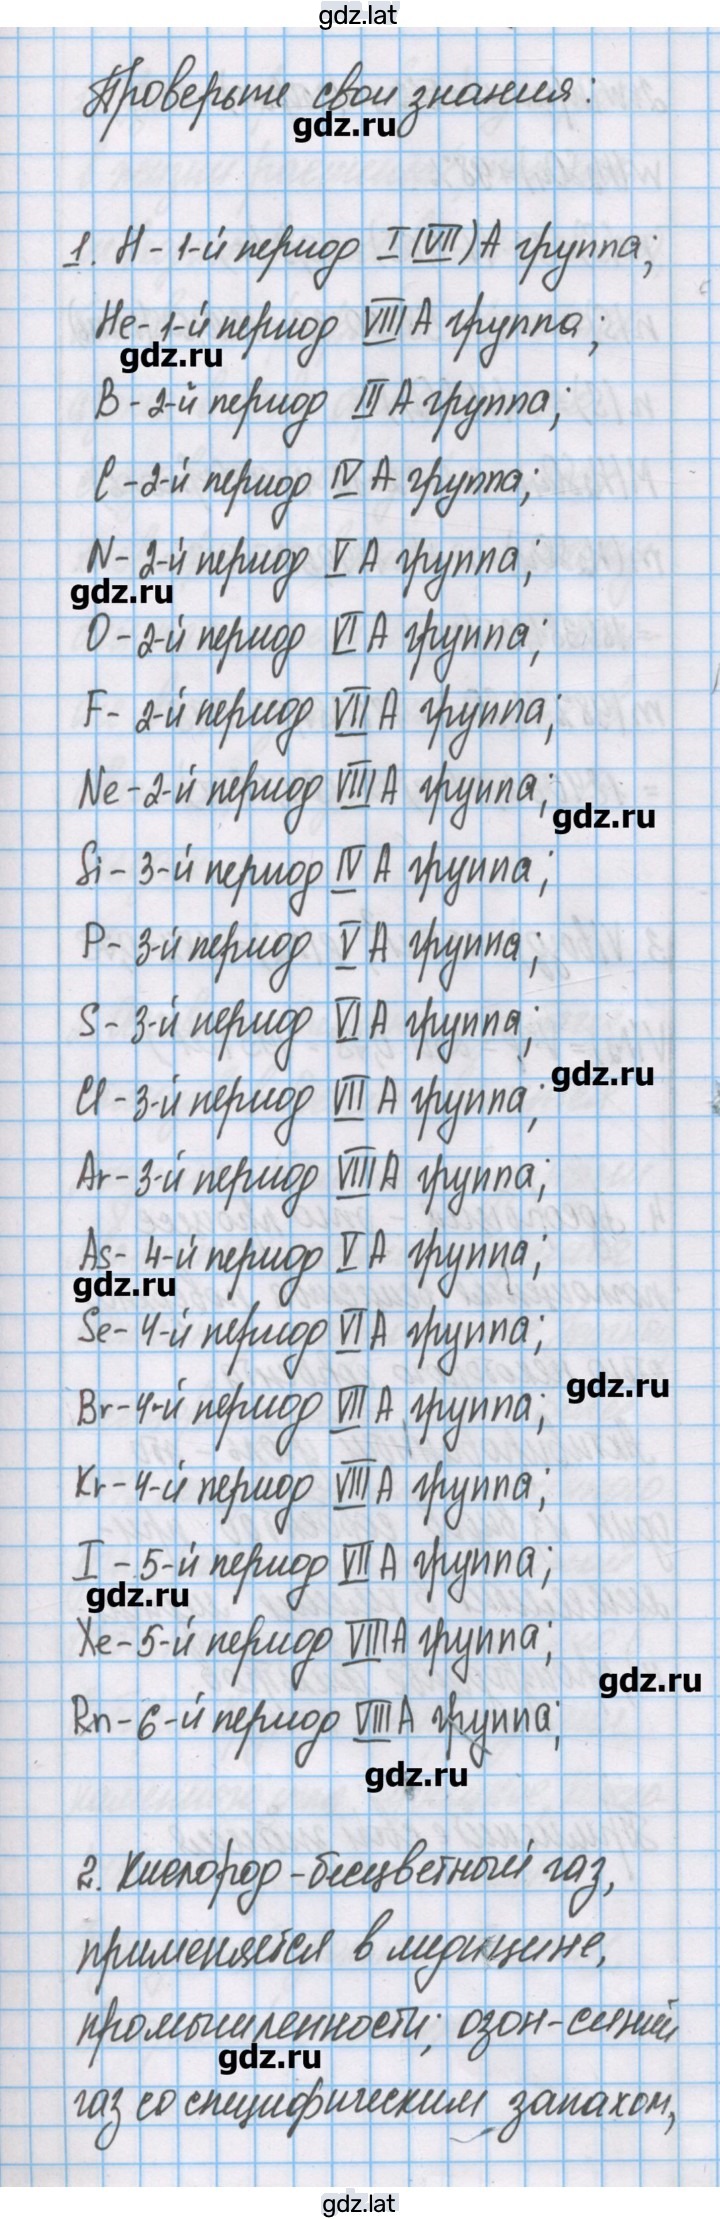 gdz.lat
Проверьте свои знания:
gdz.ru
1. H - 1-й период I (VII) A группа;
He - 1-й период VIII A группа;
gdz.ru
B - 2-й период III A группа;
C - 2-й период IV A группа;
N - 2-й период V A группа;
gdz.ru
O - 2-й период VI A группа;
F - 2-й период VII A группа;
Ne - 2-й период VIII A группа;
gdz.ru
Si - 3-й период IV A группа;
P - 3-й период V A группа;
S - 3-й период VI A группа;
gdz.ru
Cl - 3-й период VII A группа;
Ar - 3-й период VIII A группа;
As - 4-й период V A группа;
gdz.ru
Se - 4-й период VI A группа;
gdz.ru
Br - 4-й период VII A группа;
Kr - 4-й период VIII A группа;
I - 5-й период VII A группа;
gdz.ru
Xe - 5-й период VIII A группа;
gdz.ru
Rn - 6-й период VIII A группа;
gdz.ru
2. Кислород - бесцветный газ,
применяется в медицине,
промышленности; озон - синий
gdz.ru
газ со специфическим запахом,
gdz.lat